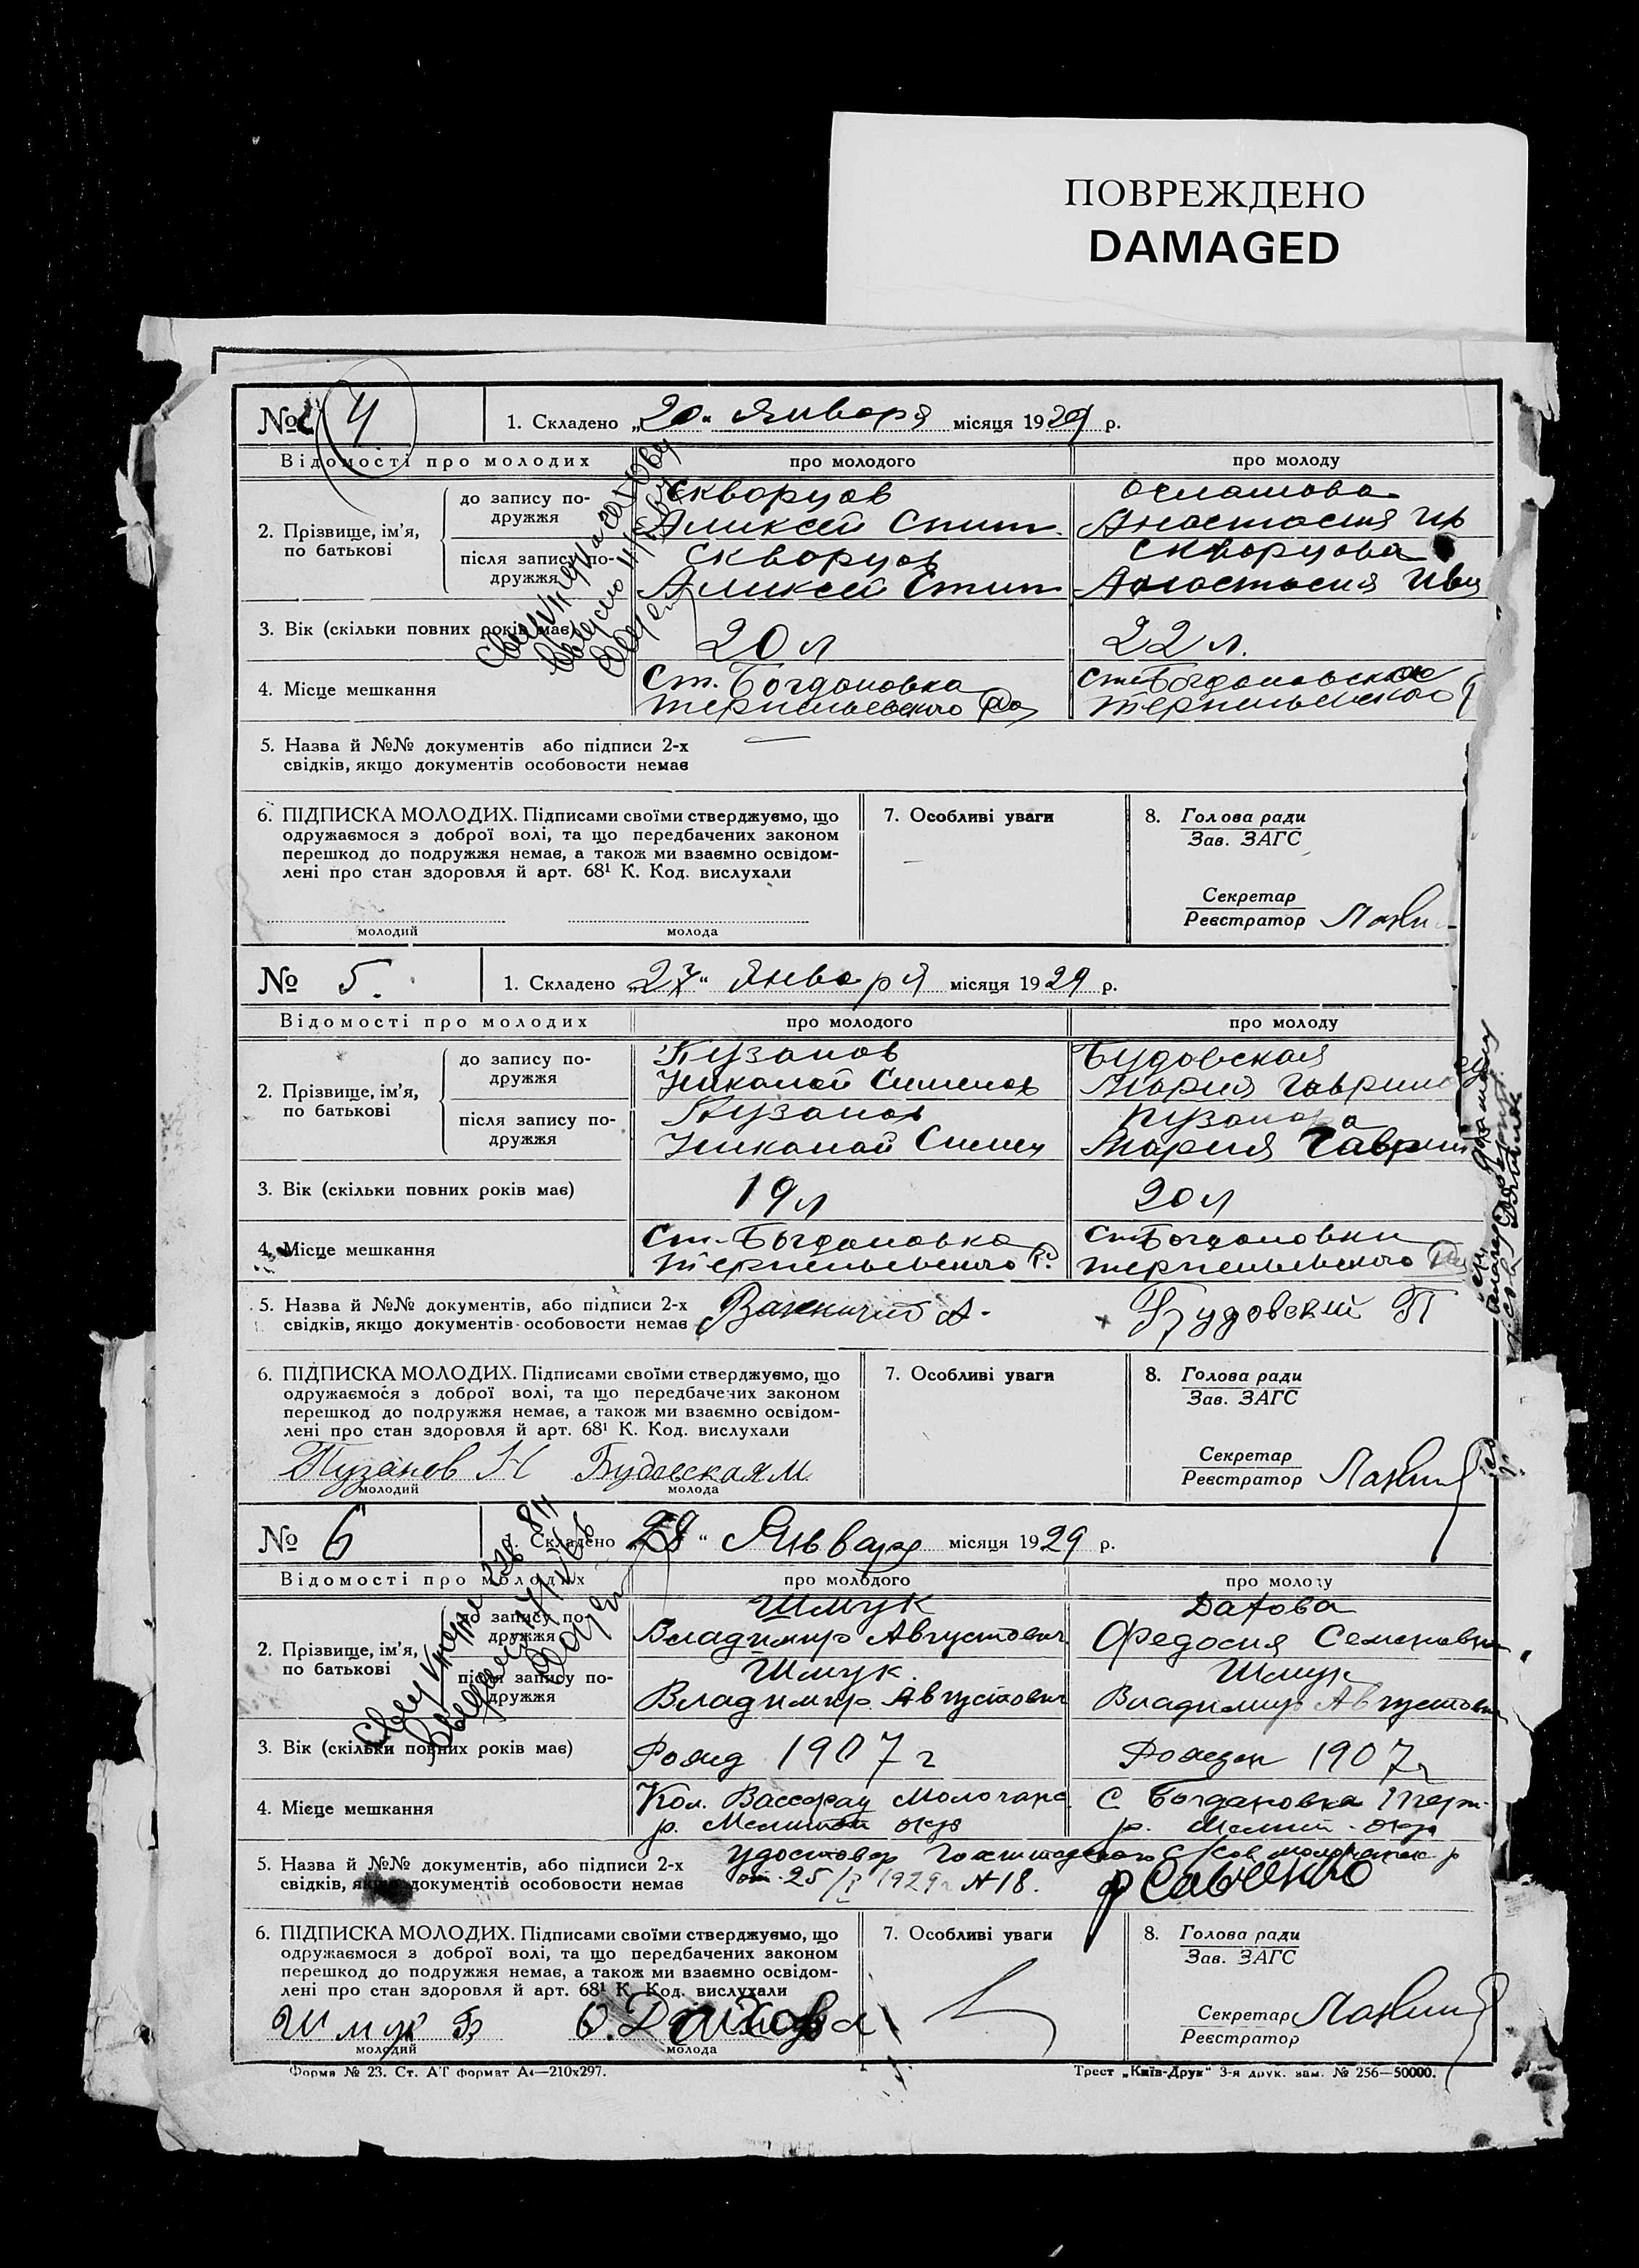 ПОВРЕЖДЕНО
DAMAGED
№ 4
1. Складено „20“ Января місяця 1929 р.
Відомості про молодих
про молодого
про молоду
2. Прізвище, ім’я, по батькові
до запису подружжя
Скворцов
Аликсей Стип.
Анастасия Ив
після запису подружжя
Скворцов
Аликсей Стип
Скворцова
Анастасия Ива
3. Вік (скільки повних років має)
20 л
22 л.
4. Місце мешкання
Ст. Богдановка
Терпеньевского
Ст. Богдановка
Терпеньевского
5. Назва й №№ документів або підписи 2-х
свідків, якщо документів особовости немає
6. ПІДПИСКА МОЛОДИХ. Підписами своїми стверджуємо, що
одружаємося з доброї волі, та що передбачених законом
перешкод до подружжя немає, а також ми взаємно освідом-
лені про стан здоровля й арт. 68¹ К. Код. вислухали
молодий
молода
7. Особливі уваги
8. Голова ради
Зав. ЗАГС
Секретар
Реєстратор
№ 5.
1. Складено „27“ Января місяця 1929 р.
Відомості про молодих
про молодого
про молоду
2. Прізвище, ім’я, по батькові
до запису подружжя
Пузанов
Николай Сименов
Будовская
Мария Гаврилов
після запису подружжя
Пузанов
Николай Симен
Пузанова
Мария Гаврил
3. Вік (скільки повних років має)
19 л
20 л
4. Місце мешкання
Ст. Богдановка
Терпеньевского Р.
Ст. Богдановки
Терпеньевского
5. Назва й №№ документів, або підписи 2-х
свідків, якщо документів особовости немає
Будовский П
6. ПІДПИСКА МОЛОДИХ. Підписами своїми стверджуємо, що
одружаємося з доброї волі, та що передбачених законом
перешкод до подружжя немає, а також ми взаємно освідом-
лені про стан здоровля й арт. 68¹ К. Код. вислухали
Пузанов Н
Будовская М.
молодий
молода
7. Особливі уваги
8. Голова ради
Зав. ЗАГС
Секретар
Реєстратор
№ 6
1. Складено „ “ Январ місяця 1929 р.
Відомості про молодих
про молодого
про молоду
2. Прізвище, ім’я, по батькові
до запису подружжя
Шмук
Владимир Августович
Дахова
Федосия Семеновна
після запису подружжя
Шмук.
Владимир Августович
Шмук
Владимир Августович
3. Вік (скільки повних років має)
Рожд 1907 г
Рожден 1907 г
4. Місце мешкання
Кол. Вассерау Молочанс.
р. Мелитоп окр
С. Богдановка Терп.
р. Мелит. окр
5. Назва й №№ документів, або підписи 2-х
свідків, якщо документів особовости немає
удостовер с/сов молочанск р
от 25/I 1929 г N 18.
Савенко
6. ПІДПИСКА МОЛОДИХ. Підписами своїми стверджуємо, що
одружаємося з доброї волі, та що передбачених законом
перешкод до подружжя немає, а також ми взаємно освідом-
лені про стан здоровля й арт. 68¹ К. Код. вислухали
Шмук В
Дахова
молодий
молода
7. Особливі уваги
8. Голова ради
Зав. ЗАГС
Секретар
Реєстратор
Форма № 23. Ст. АТ формат А4—210х297.
Трест „Київ-Друк“ 3-я друк. зам. № 256—50000.